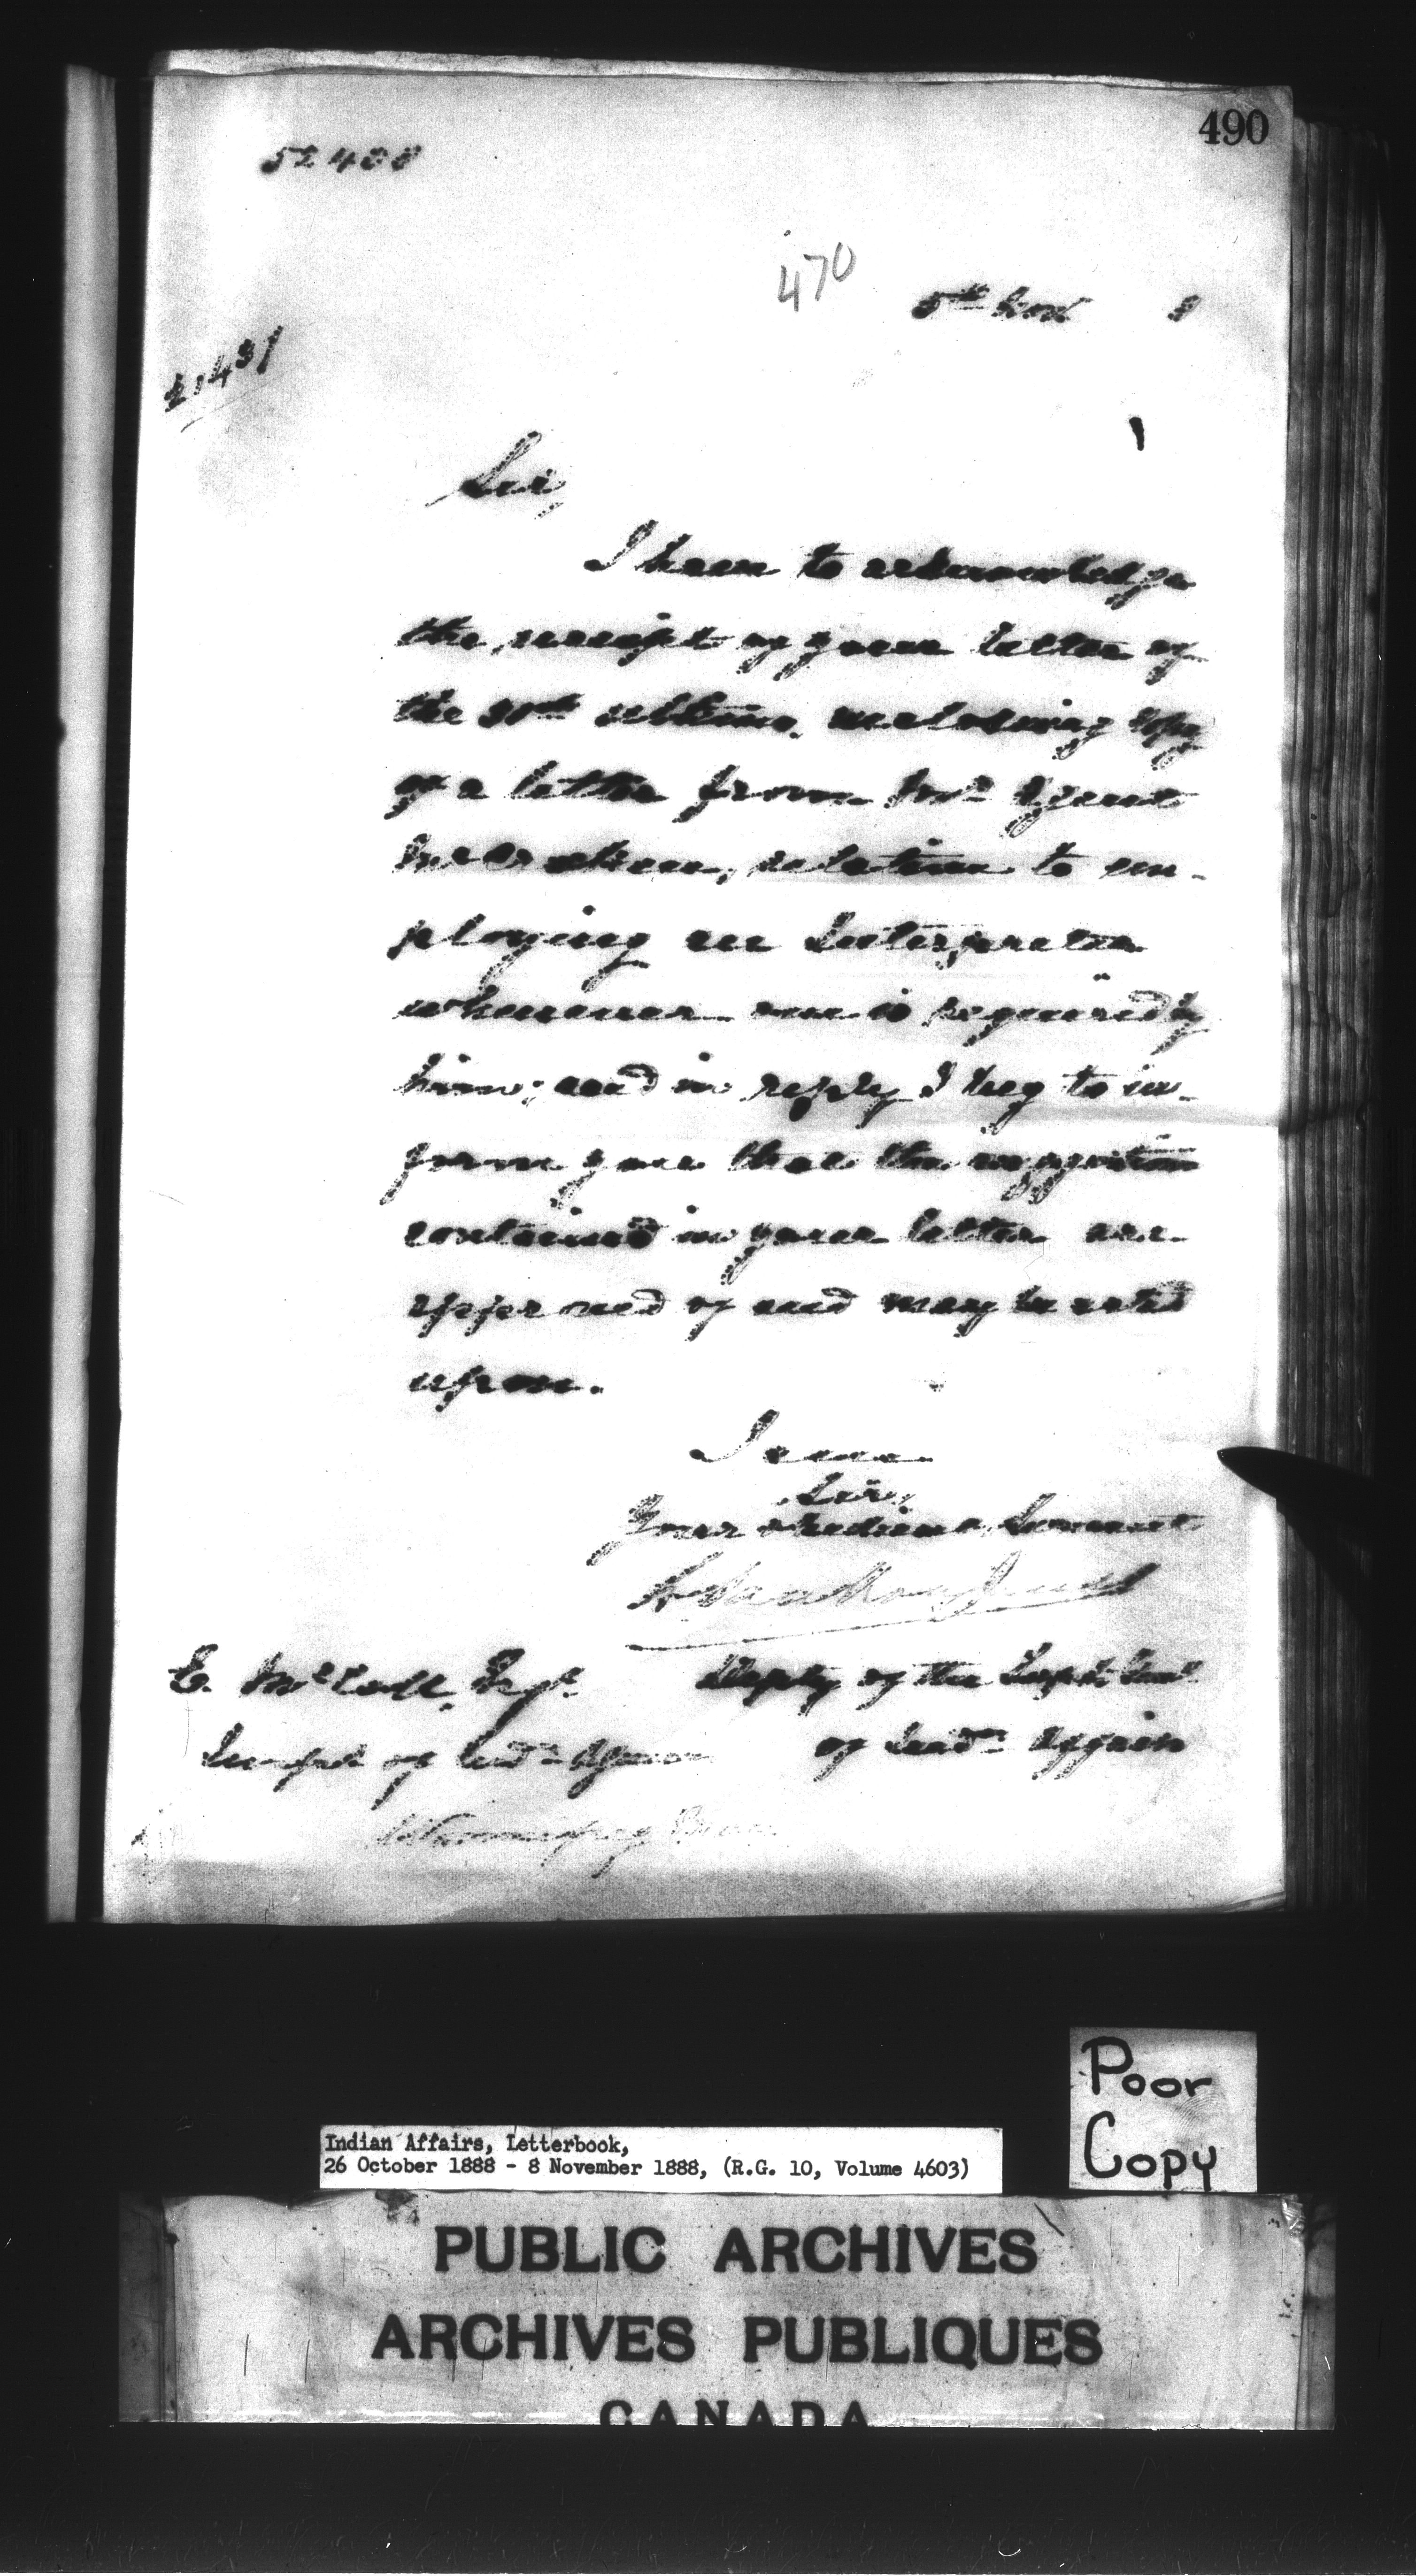 490
52400
470
5th Nov 8
21431
Sir,
I have to acknowledge
the receipt of your letter of
the 30th ultimo, enclosing copy
of a letter from Mr Agent
relative to em-
ploying an Interpreter
whenever one is required by
him; and in reply I beg to in-
form you that the
contained in your letter are
approved of and may be acted
upon.
I am
Sir,
Your obedient Servant
L. Vankoughnet
E. McColl, Esqr.
Deputy of the Supt. Genl
Inspr of Indn Agencies
of Indn Affairs
Winnipeg Man
Poor
Copy
Indian Affairs, Letterbook,
26 October 1888 - 8 November 1888, (R.G. 10, Volume 4603)
PUBLIC ARCHIVES
ARCHIVES PUBLIQUES
CANADA